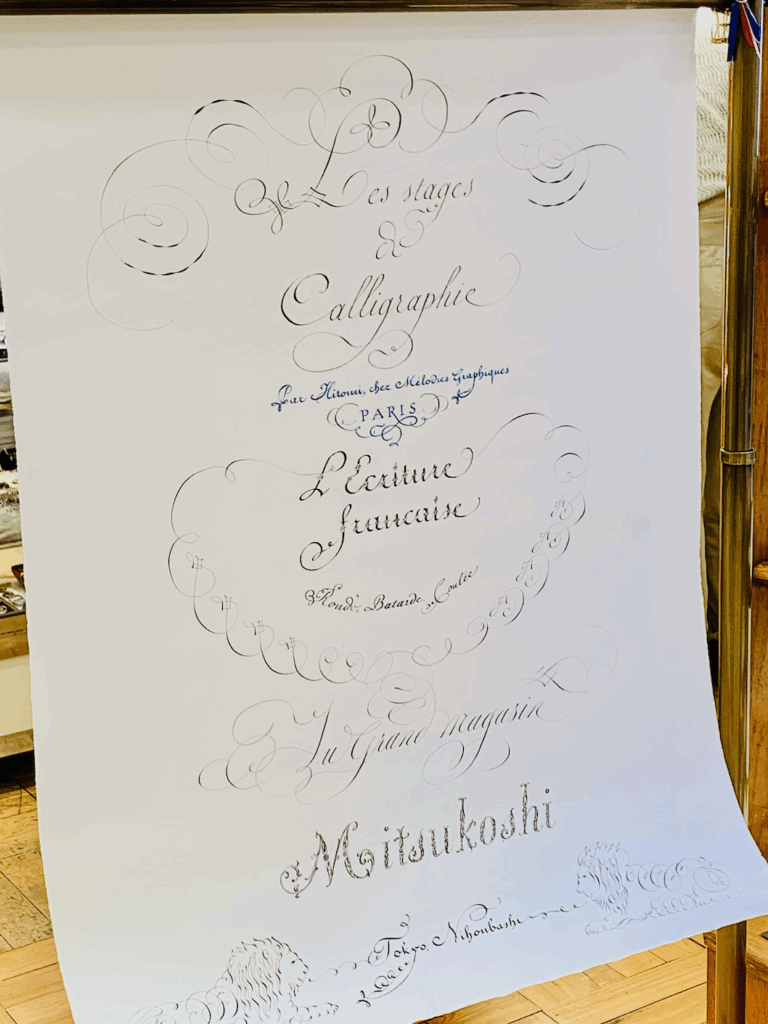 Les stages
de
Calligraphie
Par Hiromi, chez Mélodies Graphiques
PARIS
L'Ecriture
française
Ronde, Batarde, Coulée
Au Grand magasin
Mitsukoshi
Tokyo, Nihonbashi